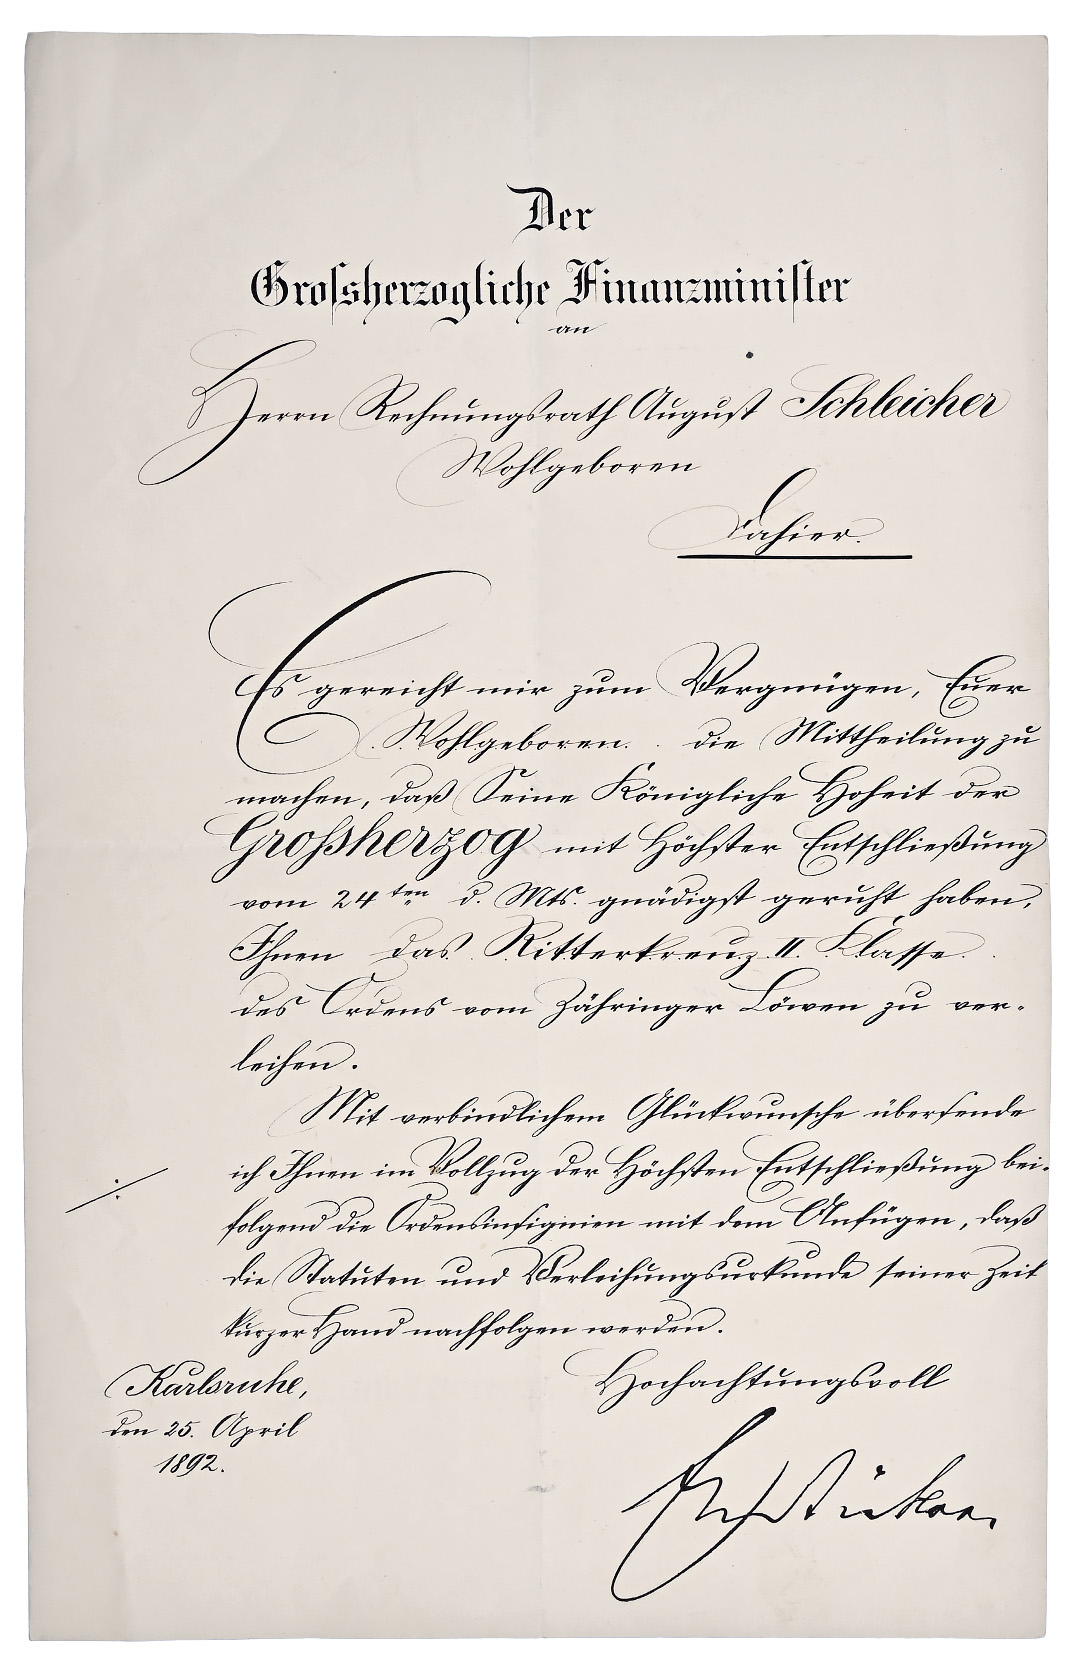 Der
Grossherzogliche Finanzminister
an
Herrn Rechnungsrath August Schleicher
Wohlgeboren
Dahier.
Es gereicht mir zum Vergnügen, Euer
Wohlgeboren. die Mittheilung zu
machen, daß Seine Königliche Hoheit der
Grossherzog mit Höchster Entschließung
vom 24ten d. Mts. gnädigst geruht haben,
Ihnen das Ritterkreuz II. Klasse
des Ordens vom Zähringer Löwen zu ver-
leihen.
Mit verbindlichem Glückwunsche übersende
ich Ihnen im Vollzug der Höchsten Entschließung bei-
folgend die Ordensinsignien mit dem Anfügen, daß
die Statuten und Verleihungsurkunde seiner Zeit
kurzer Hand nachfolgen werden.
Hochachtungsvoll
Karlsruhe,
den 25. April
1892.